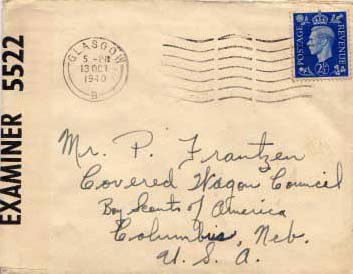 EXAMINER 5522
GLASGOW
5 - PM
13 OCT
1940
B
POSTAGE
REVENUE
2½D
Mr. P. Frantzen
Covered Wagon Council
Boy Scouts of America
Columbus, Neb.
U. S. A.